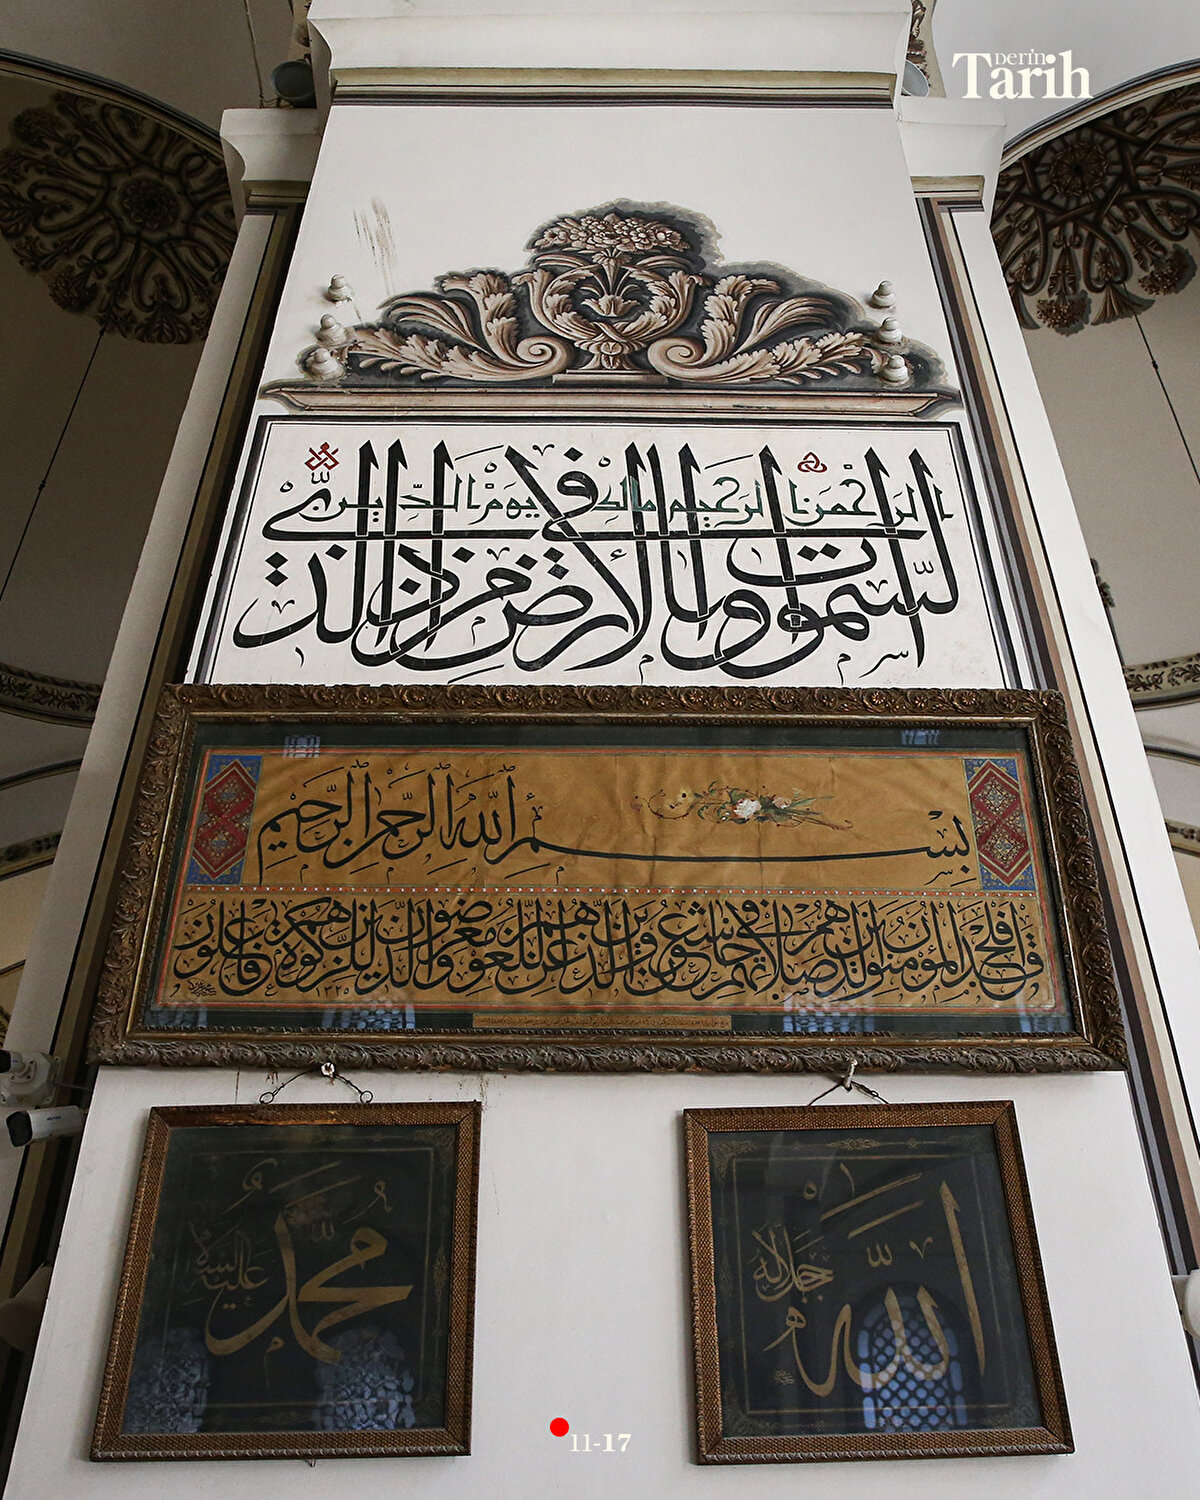 DERİN
Tarih
الرحمن الرحيم مالك يوم الدين
السموات وما في الأرض من ذا الذي
بسم الله الرحمن الرحيم
قد أفلح المؤمنون الذين هم في صلاتهم خاشعون والذين هم عن اللغو معرضون والذين هم للزكوة فاعلون
١٣٢٥
الله جل جلاله
محمد عليه السلام
11-17